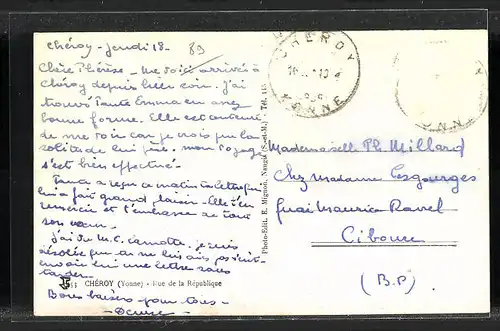 Chéroy - Jeudi 18 - 89
Chère Thérèse - Me voici arrivée à
Chéroy depuis hier soir. J'ai
trouvé Tante Emma en assez
bonne forme. Elle est contente
de me voir car je crois que la
solitude lui pèse. Mon voyage
s'est bien effectué.
Tante a reçu ce matin ta lettre qui
lui a fait grand plaisir. Elle t'en
remercie et t'embrasse de tout
son cœur.
J'ai vu M. C. Lamotte. Je suis
désolée que tu ne lui aies pas écrit
envoie lui une lettre sans
tarder.
Bons baisers pour tous -
Denise -
CHÉROY (Yonne) - Rue de la République
Photo-Edit. R. Mignon, Nangis (S.-et-M.) - Tél. 115
CHEROY
YONNE
ONNE
Mademoiselle Th. Millard
Chez Madame Lesgourgues
Quai Maurice Ravel
Ciboure
(B.P)